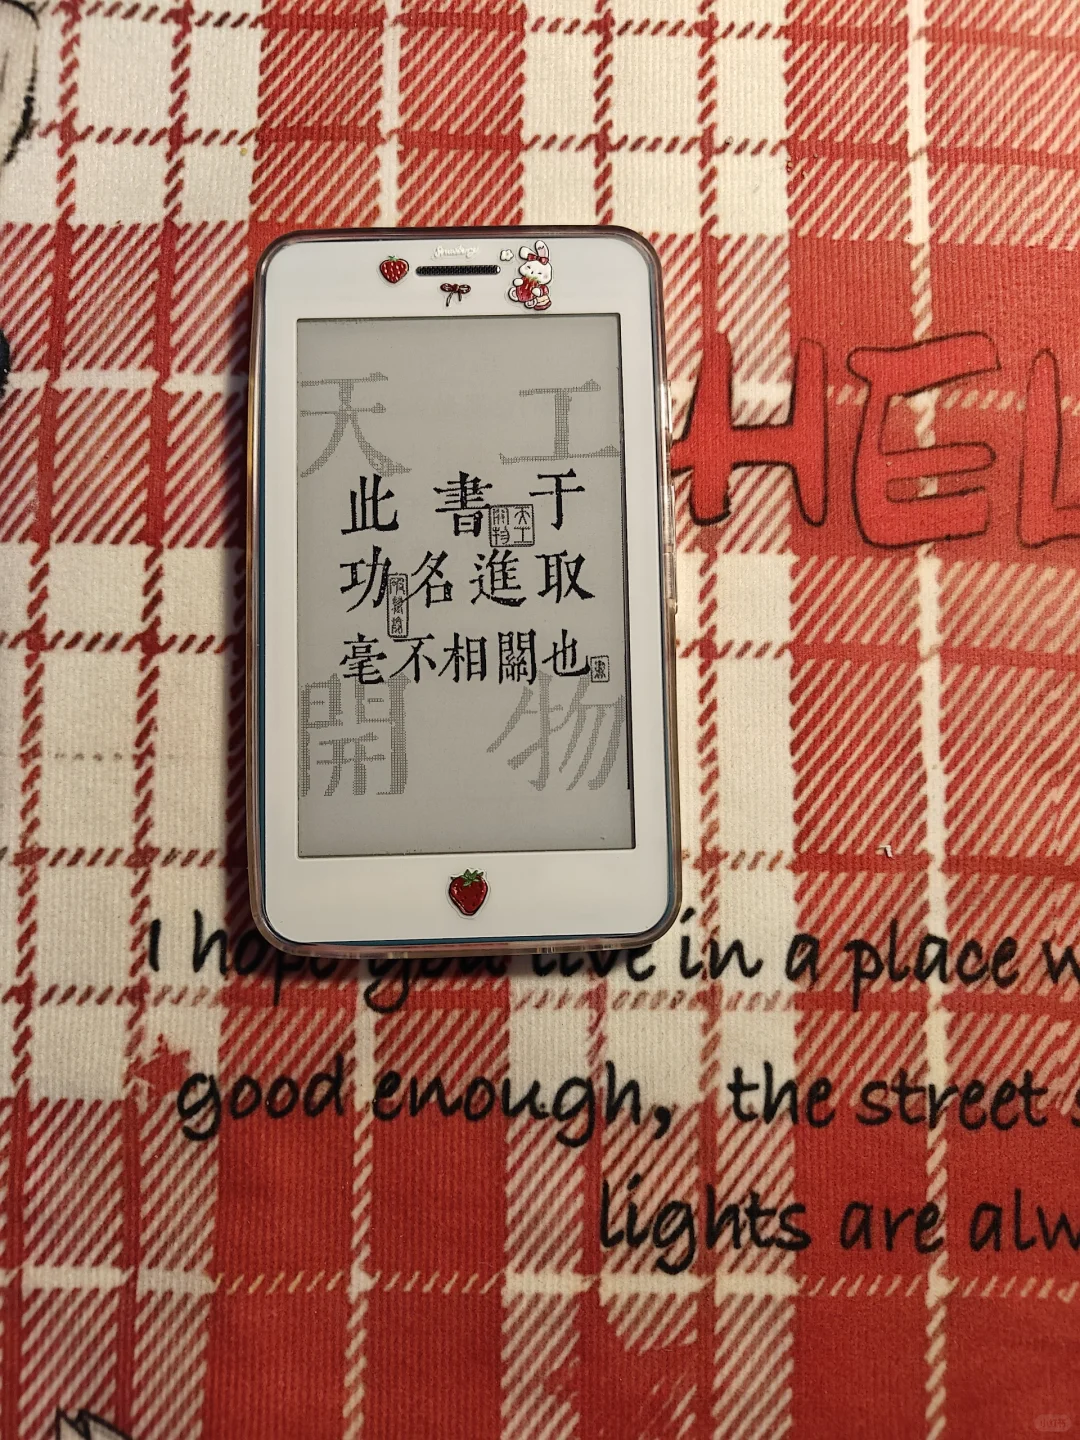 天 工
此 書 于
天工
開物
功名進取
毫不相關也
開 物
HEL
I hope you live in a place w
good enough, the street s
lights are alw
小红书